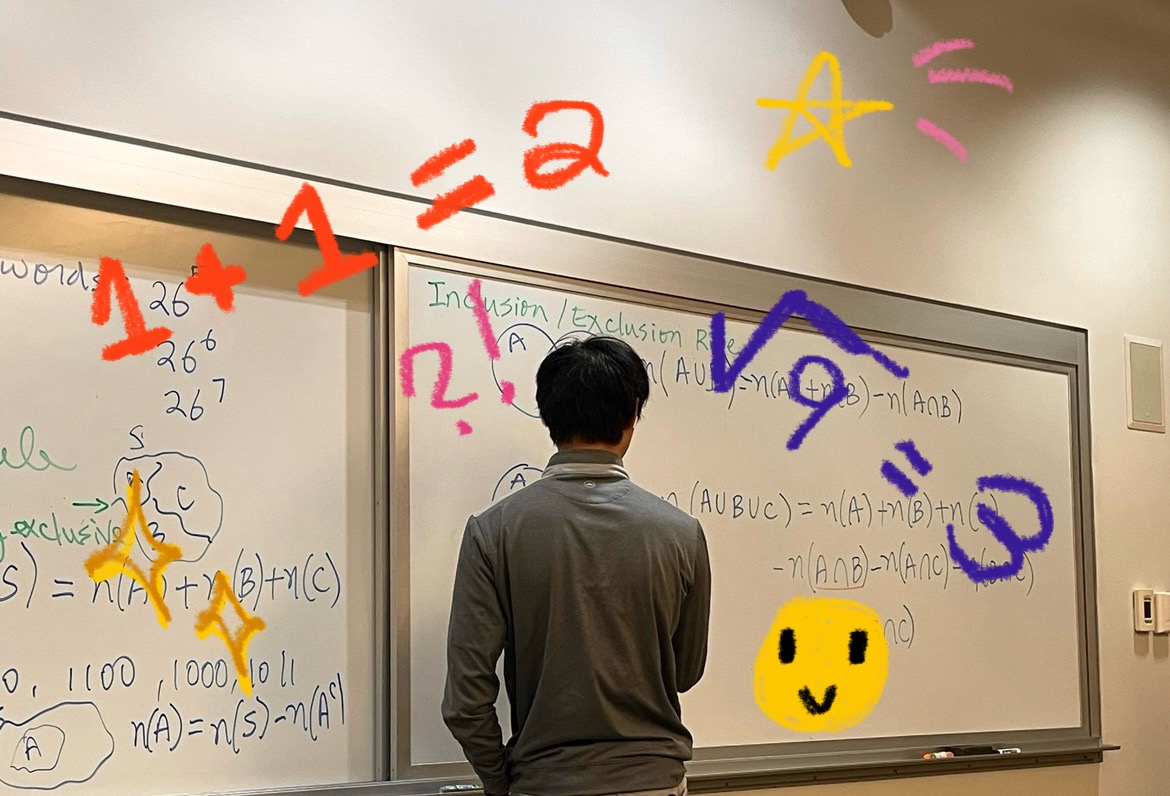 1+1=2
words 26
26⁶
26⁷
S
C
B
exclusive
S) = n(A)+n(B)+n(C)
0, 1100, 1000, 1011
A
n(A)=n(S)-n(Aᶜ)
?!
Inclusion/Exclusion
A
n(AU)=n(A)+n(B)-n(A∩B)
√9=3
A
n(AUBUC)=n(A)+n(B)+n(
-n(A∩B)-n(A∩C)-
∩C)